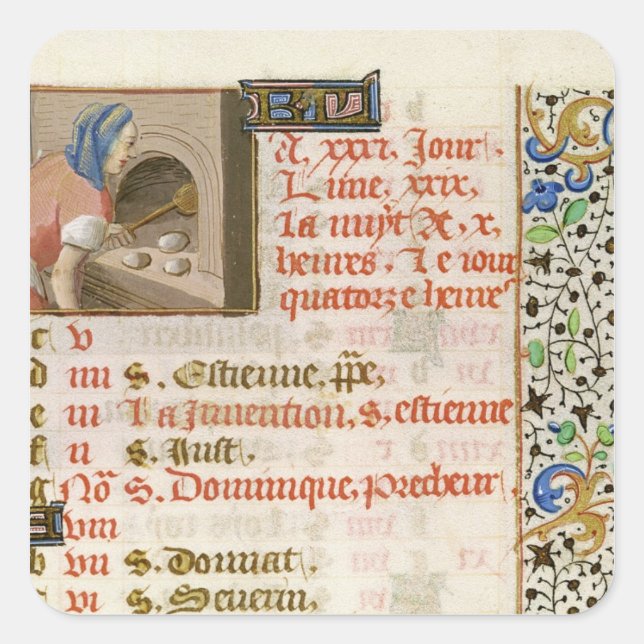 A, xxxi, Jour,
Lune, xxix,
La nuyt A, x,
heures, Le iour
quatorze heure
c v
d iiii S. Estienne, ppe,
e iii La Invention, S, estienne
f ii S. Just,
g No S. Dominique, precheur,
viii
b vii S. Donnat,
vi S. Severin,